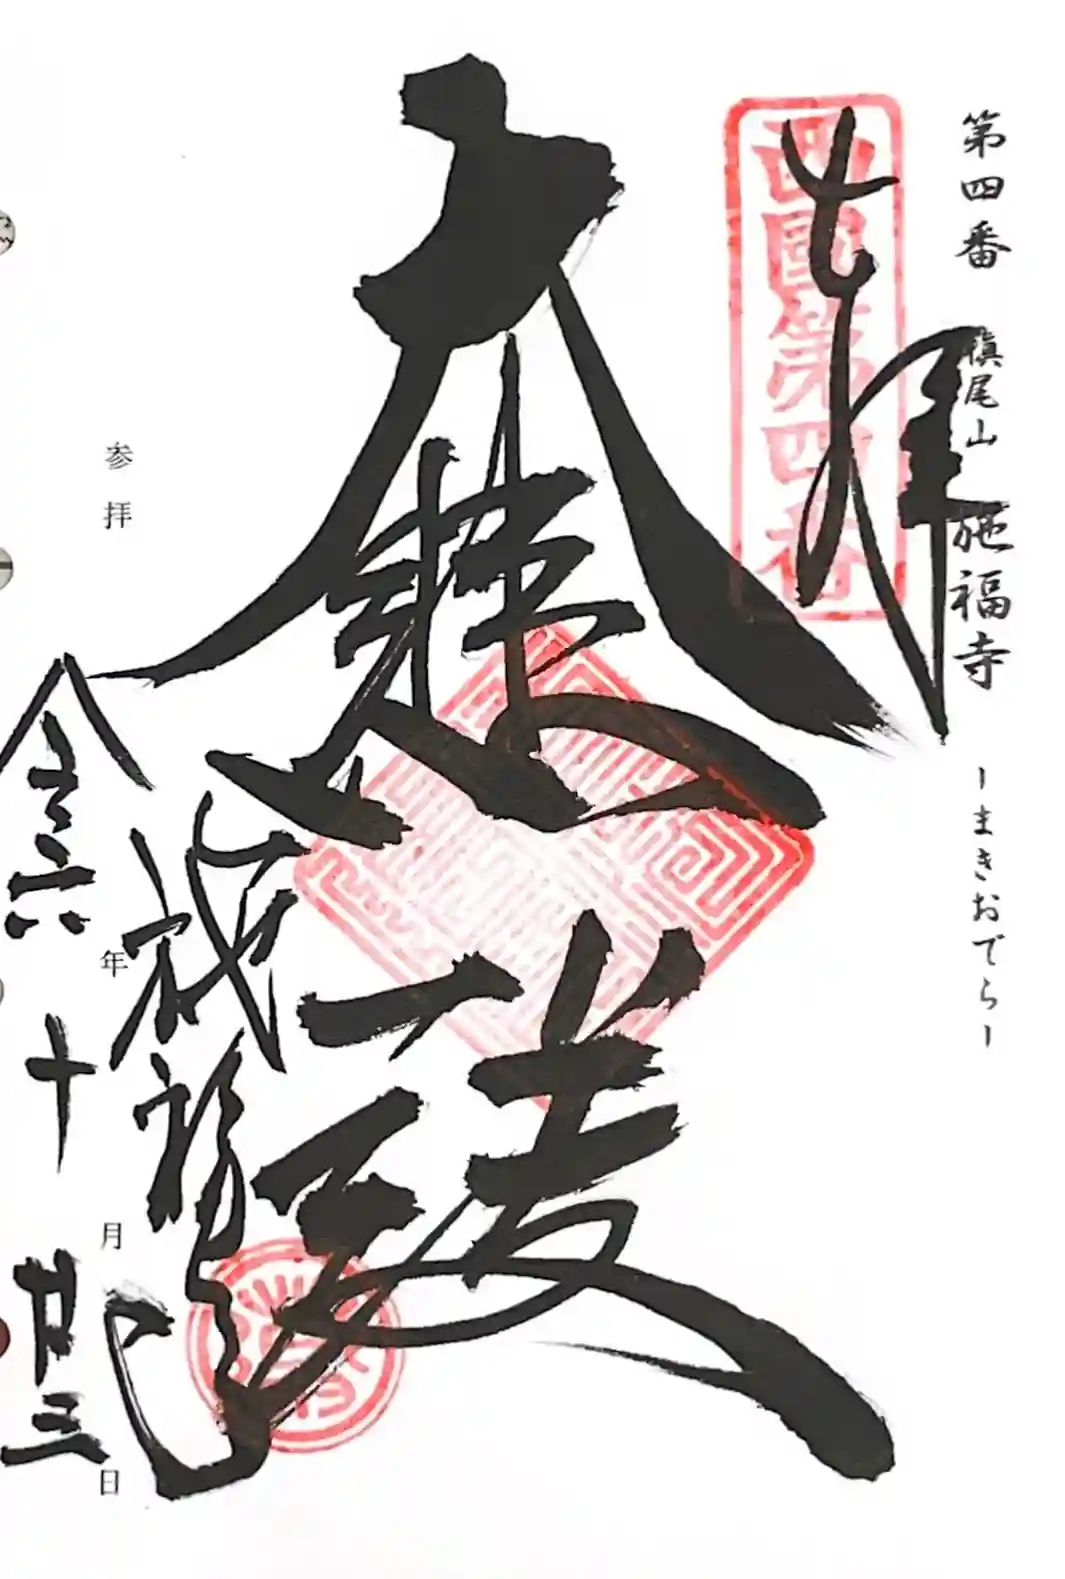 第四番 槇尾山 施福寺
ーまきおでらー
奉拝
西國第四番
大悲殿
施福寺
参拝
令和六年十月廿三日